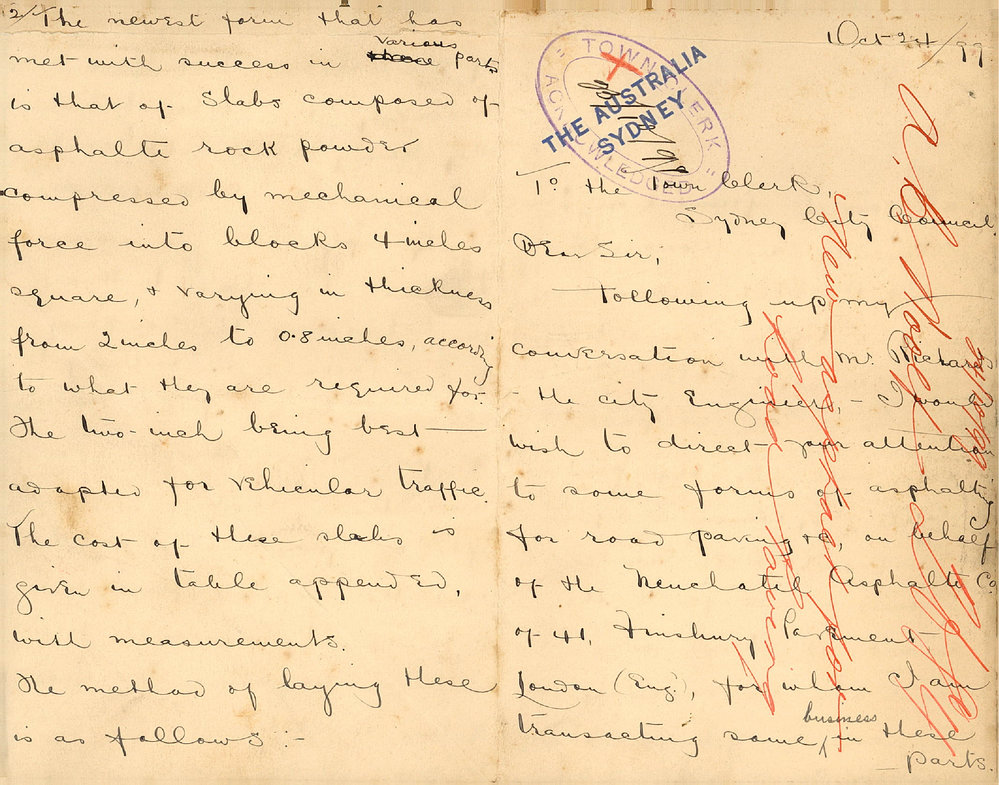 Oct 24/99
TOWN CLERK
ACKNOWLEDGED
THE AUSTRALIA
SYDNEY
To the Town Clerk,
Sydney City Council.
Dear Sir,
Following up my
conversation with Mr Richards
- the city Engineer, - I would
wish to direct your attention
to some forms of asphalting
for road paving &c, on behalf
of the Neuchatel Asphalte Co
of 41, Finsbury Pavement
London (Eng), for whom I am
transacting some business in these
parts.
New asphalt for
road paving
2/ The newest form that has
met with success in various parts
is that of Slabs composed of
asphalte rock powder
compressed by mechanical
force into blocks 4 inches
square, & varying in thickness
from 2 inches to 0.8 inches, according
to what they are required for.
The two-inch being best
adapted for vehicular traffic.
The cost of these slabs is
given in table appended,
with measurements.
The method of laying these
is as follows :-